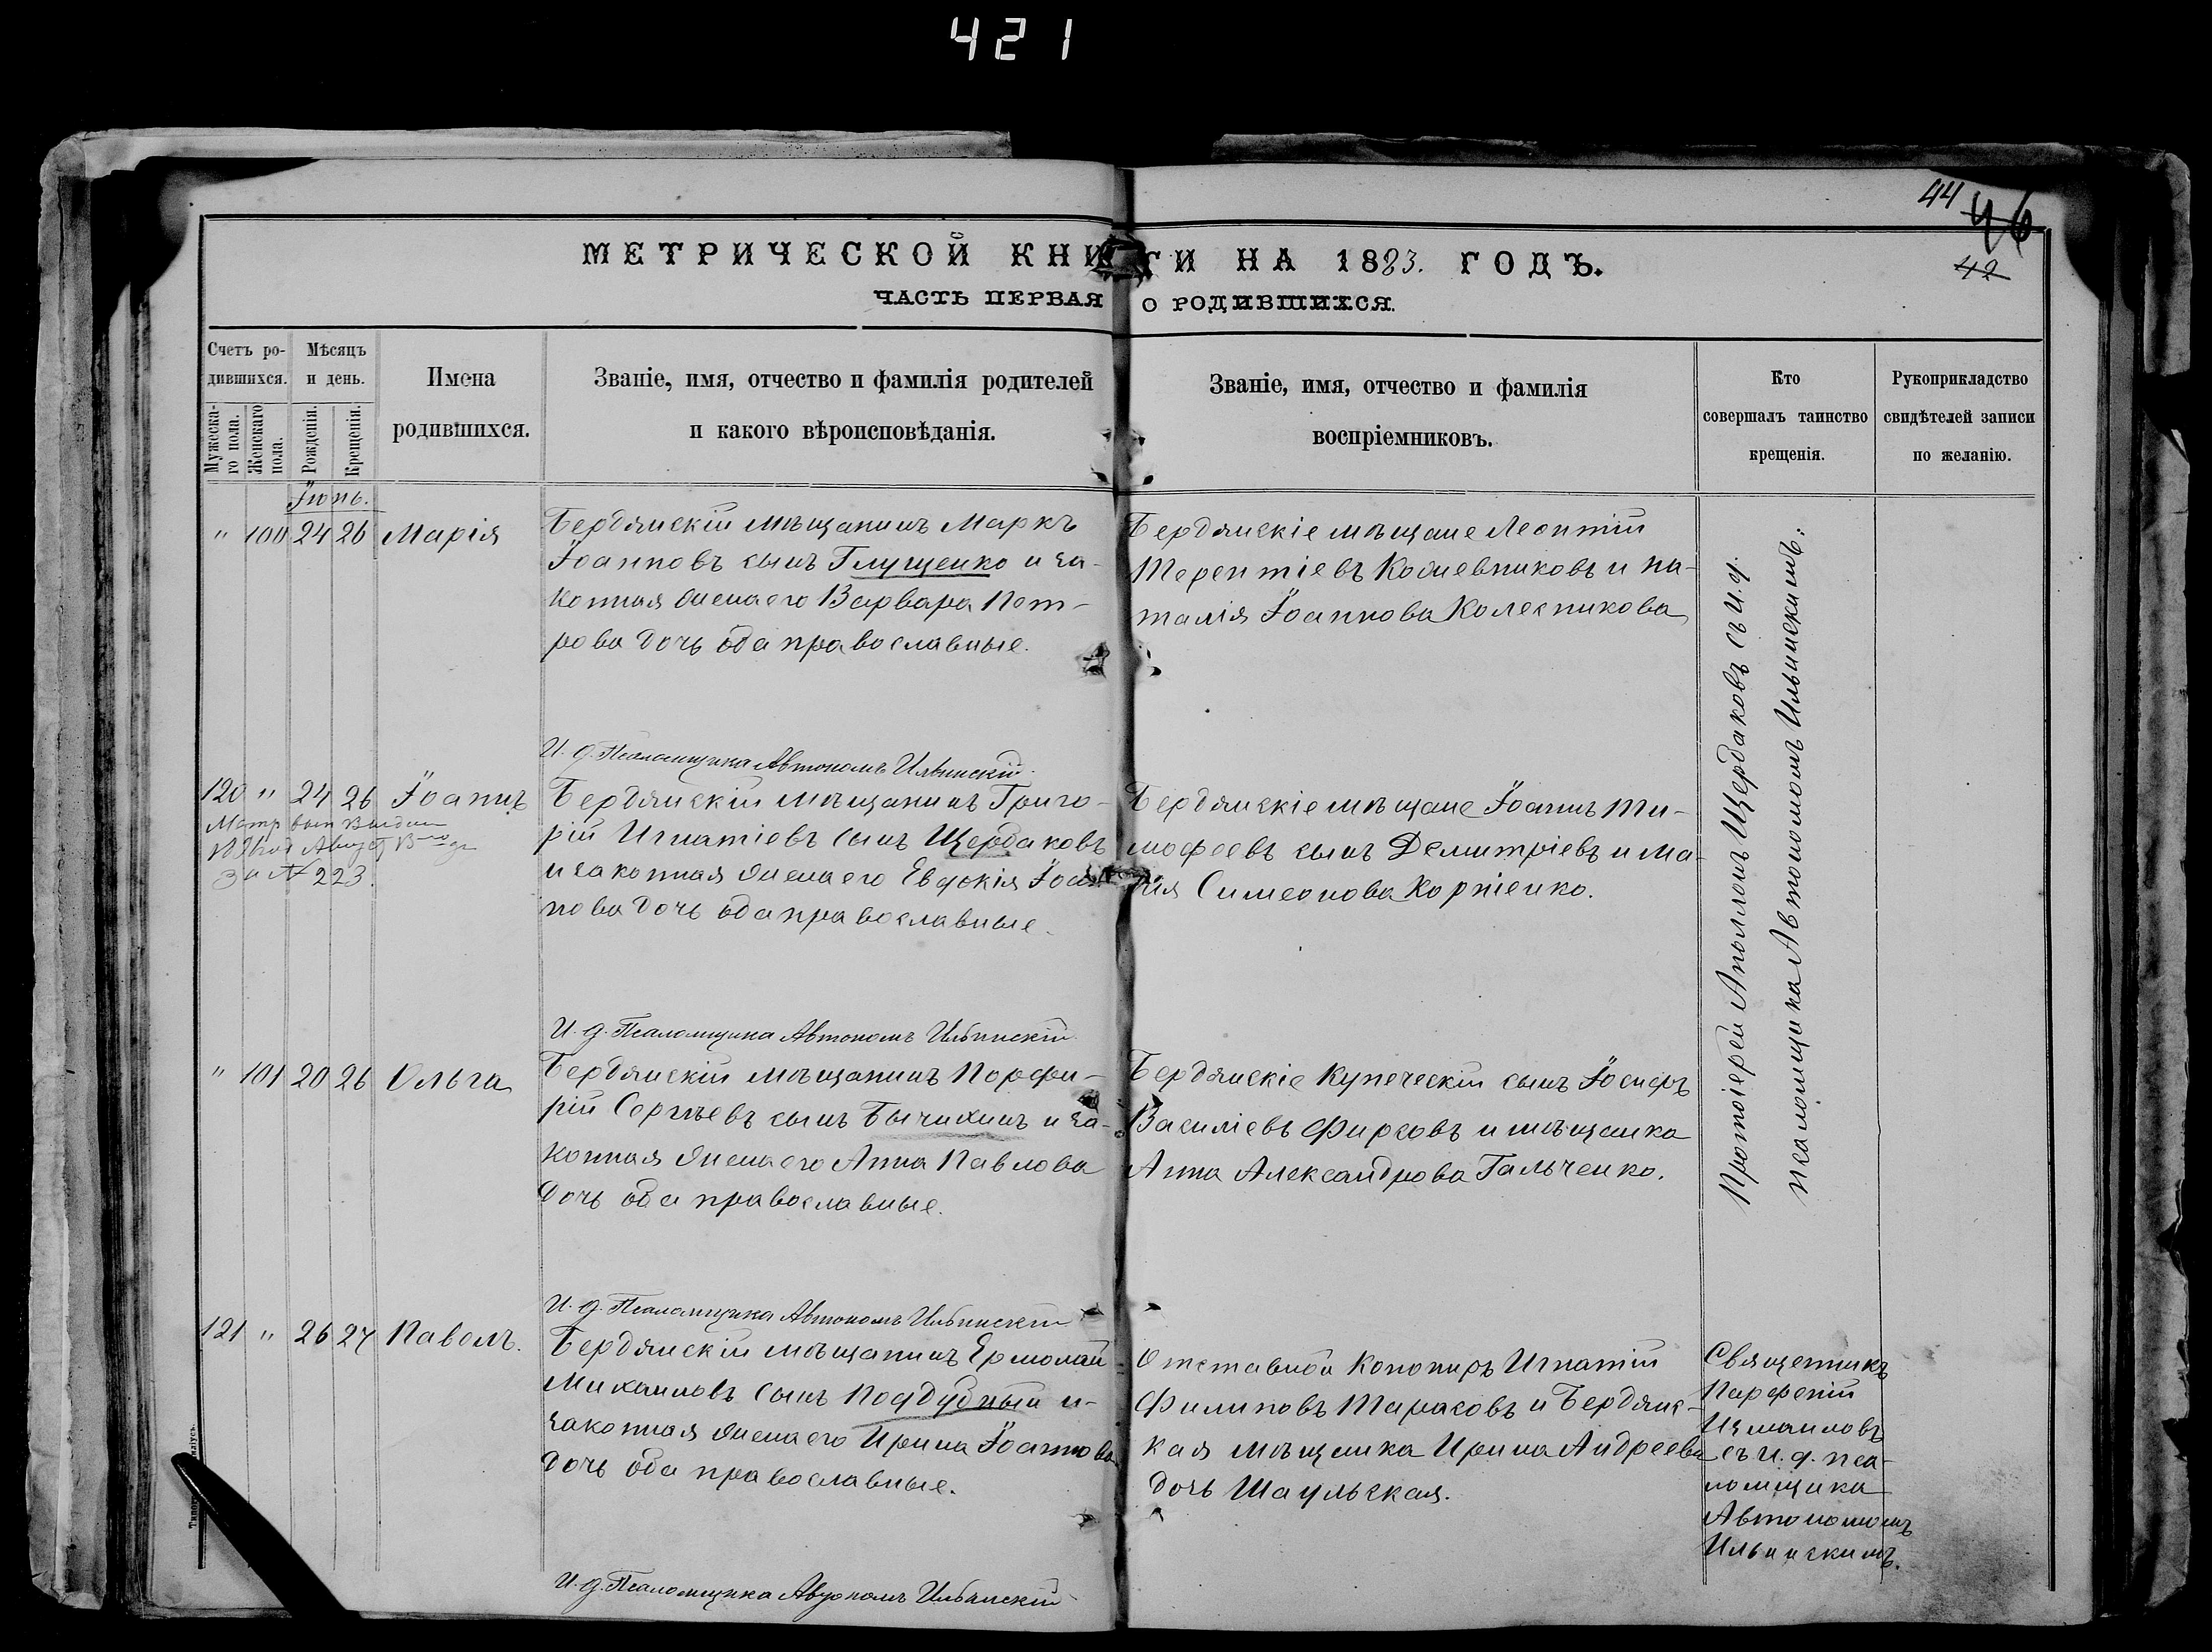 421
44 46
42
МЕТРИЧЕСКОЙ КНИГИ НА 1883. ГОДЪ.
ЧАСТЬ ПЕРВАЯ О РОДИВШИХСЯ.
Счетъ ро-
дившихся.
Мужеска-
го пола.
Женскаго
пола.
Мѣсяцъ
и день.
Рожденія.
Крещенія.
Имена
родившихся.
Званіе, имя, отчество и фамилія родителей
и какого вѣроисповѣданія.
Званіе, имя, отчество и фамилія
воспріемниковъ.
Кто
совершалъ таинство
крещенія.
Рукоприкладство
свидѣтелей записи
по желанію.
Іюнь.
" 100 24 26 Марія
Бердянскій мѣщанинъ Маркъ
Іоанновъ сынъ Глущенко и за-
конная жена его Варвара Пет-
рова дочь оба православные.
Бердянскіе мѣщане Леонтій
Терентіевъ Кожевниковъ и На-
талія Іоаннова Колесникова
И. д. Псаломщика Автономъ Ильинскій.
120 " 24 26 Іоаннъ
за № 223.
Бердянскій мѣщанинъ Григо-
рій Игнатіевъ сынъ Щербаковъ
и законная жена его Евдокія Іоан-
нова дочь оба православные.
Бердянскіе мѣщане Іоаннъ Ти-
мофеевъ сынъ Демитріевъ и Ма-
рія Симеонова Корніенко.
Протоіерей Аполлонъ Щербаковъ съ и. д.
псаломщика Автономомъ Ильинскимъ.
И. д. Псаломщика Автономъ Ильинскій
" 101 20 26 Ольга
Бердянскій мѣщанинъ Порфи-
рій Сергѣевъ сынъ Бычихинъ и за-
конная жена его Анна Павлова
дочь оба православные.
Бердянскіе Купеческій сынъ Іосифъ
Василіевъ Фирсовъ и мѣщанка
Анна Александрова Гальченко.
И. д. Псаломщика Автономъ Ильинскій
121 " 26 27 Павелъ.
Бердянскій мѣщанинъ Ермолай
Михаиловъ сынъ Поддубный и
законная жена его Ирина Іоаннова
дочь оба православные.
Отставной Канониръ Игнатій
Филиповъ Тарасовъ и Бердянс-
кая мѣщанка Ирина Андреева
дочь Шаульская.
Священникъ
Парфеній
Измаиловъ
съ и. д. пса-
ломщика
Автономомъ
Ильинскимъ.
И. д. Псаломщика Автономъ Ильинскій